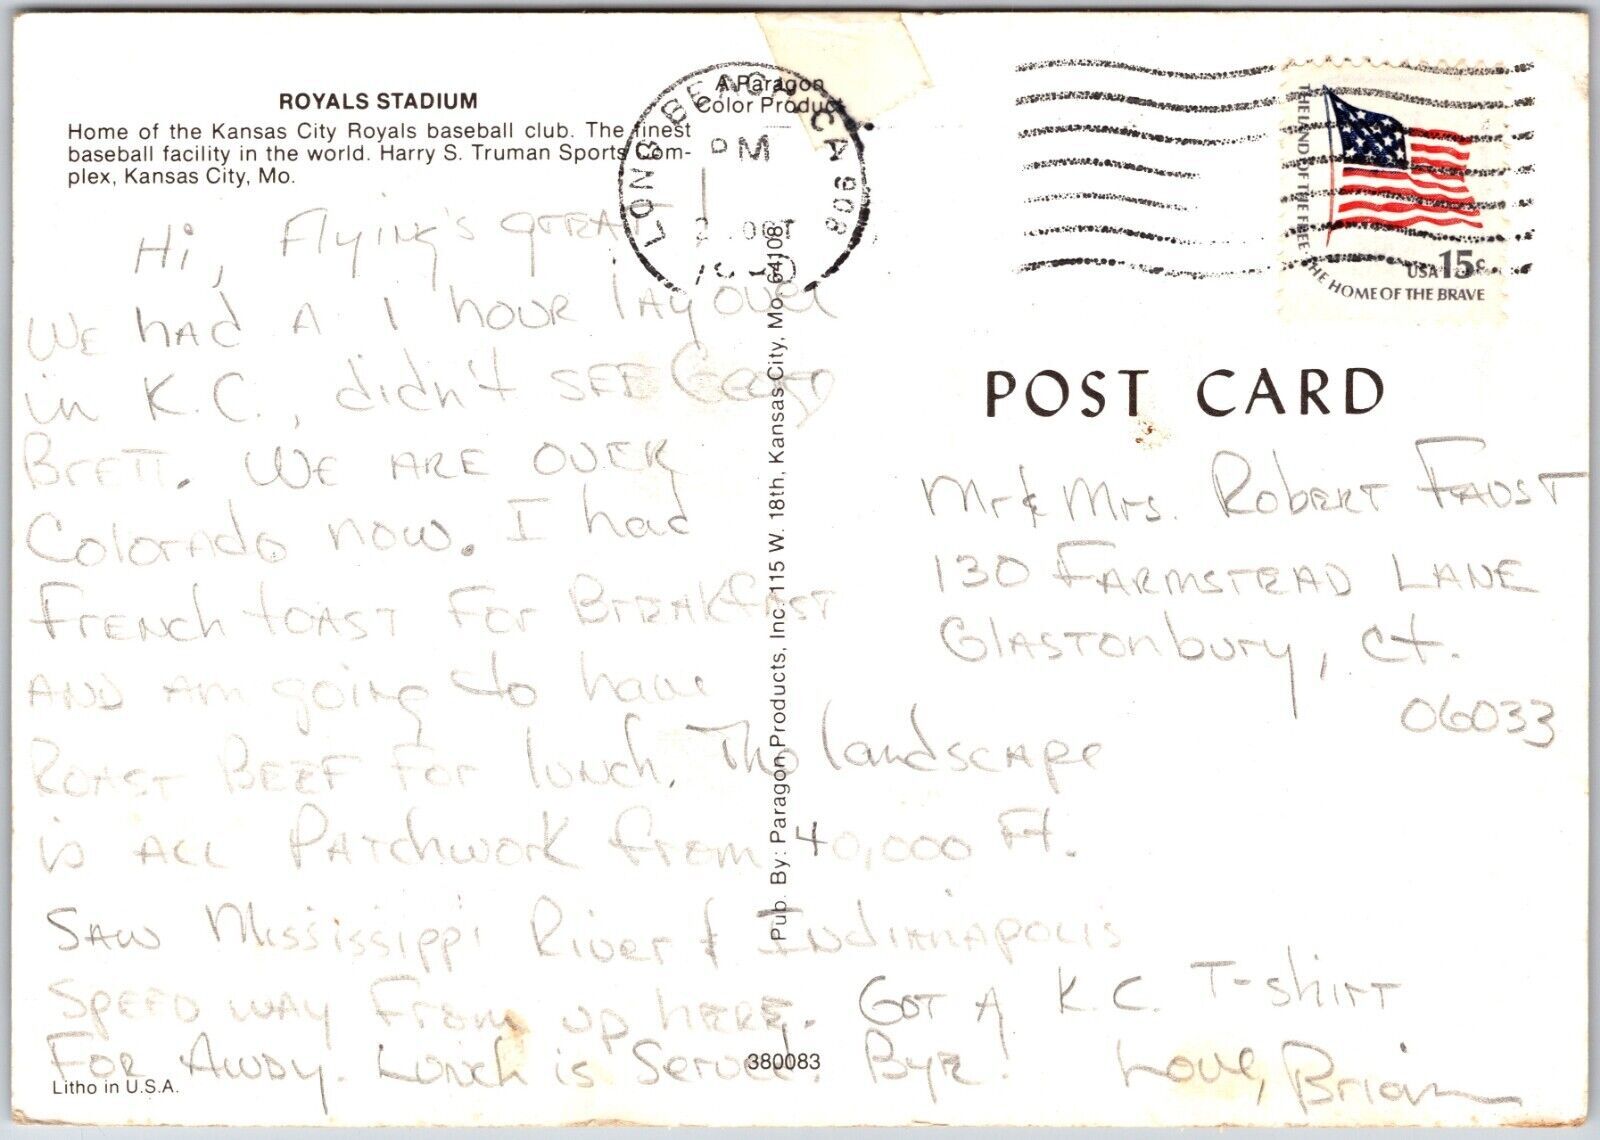 ROYALS STADIUM
Home of the Kansas City Royals baseball club. The finest
baseball facility in the world. Harry S. Truman Sports Com-
plex, Kansas City, Mo.
A Paragon
Color Product
LONG BEACH CA 908
PM
OCT
THE LAND OF THE FREE THE HOME OF THE BRAVE
USA 15c
POST CARD
Hi, Flying's great
We had A 1 hour layover
in K.C., didn't see George
Brett. We are over
Colorado now. I had
French toast for Breakfast
and am going to have
Roast Beef for lunch. The landscape
is all Patchwork from 40,000 Ft.
Saw Mississippi River & Indianapolis
Speedway from up here. Got A K.C. T-shirt
For Andy. Lunch is Served! Bye! Love, Brian
Mr & Mrs. Robert Faust
130 Farmstead Lane
Glastonbury, Ct.
06033
Pub. By: Paragon Products, Inc. 115 W. 18th, Kansas City, Mo. 64108
380083
Litho in U.S.A.